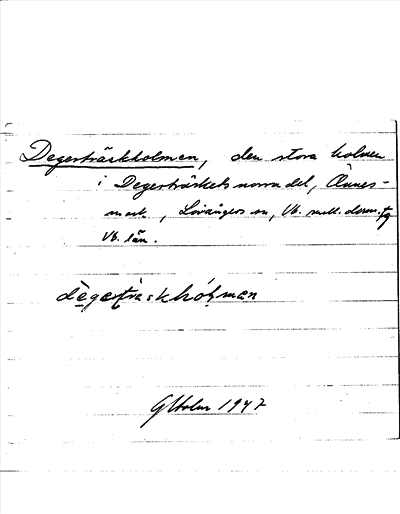 Degerträskholmen, den stora holmen
i Degerträskets norra del, Önnes-
mark, Lövångers sn, Vb. mell. doms. tg
Vb. län.
degerträskhólmen
GHolm 1947